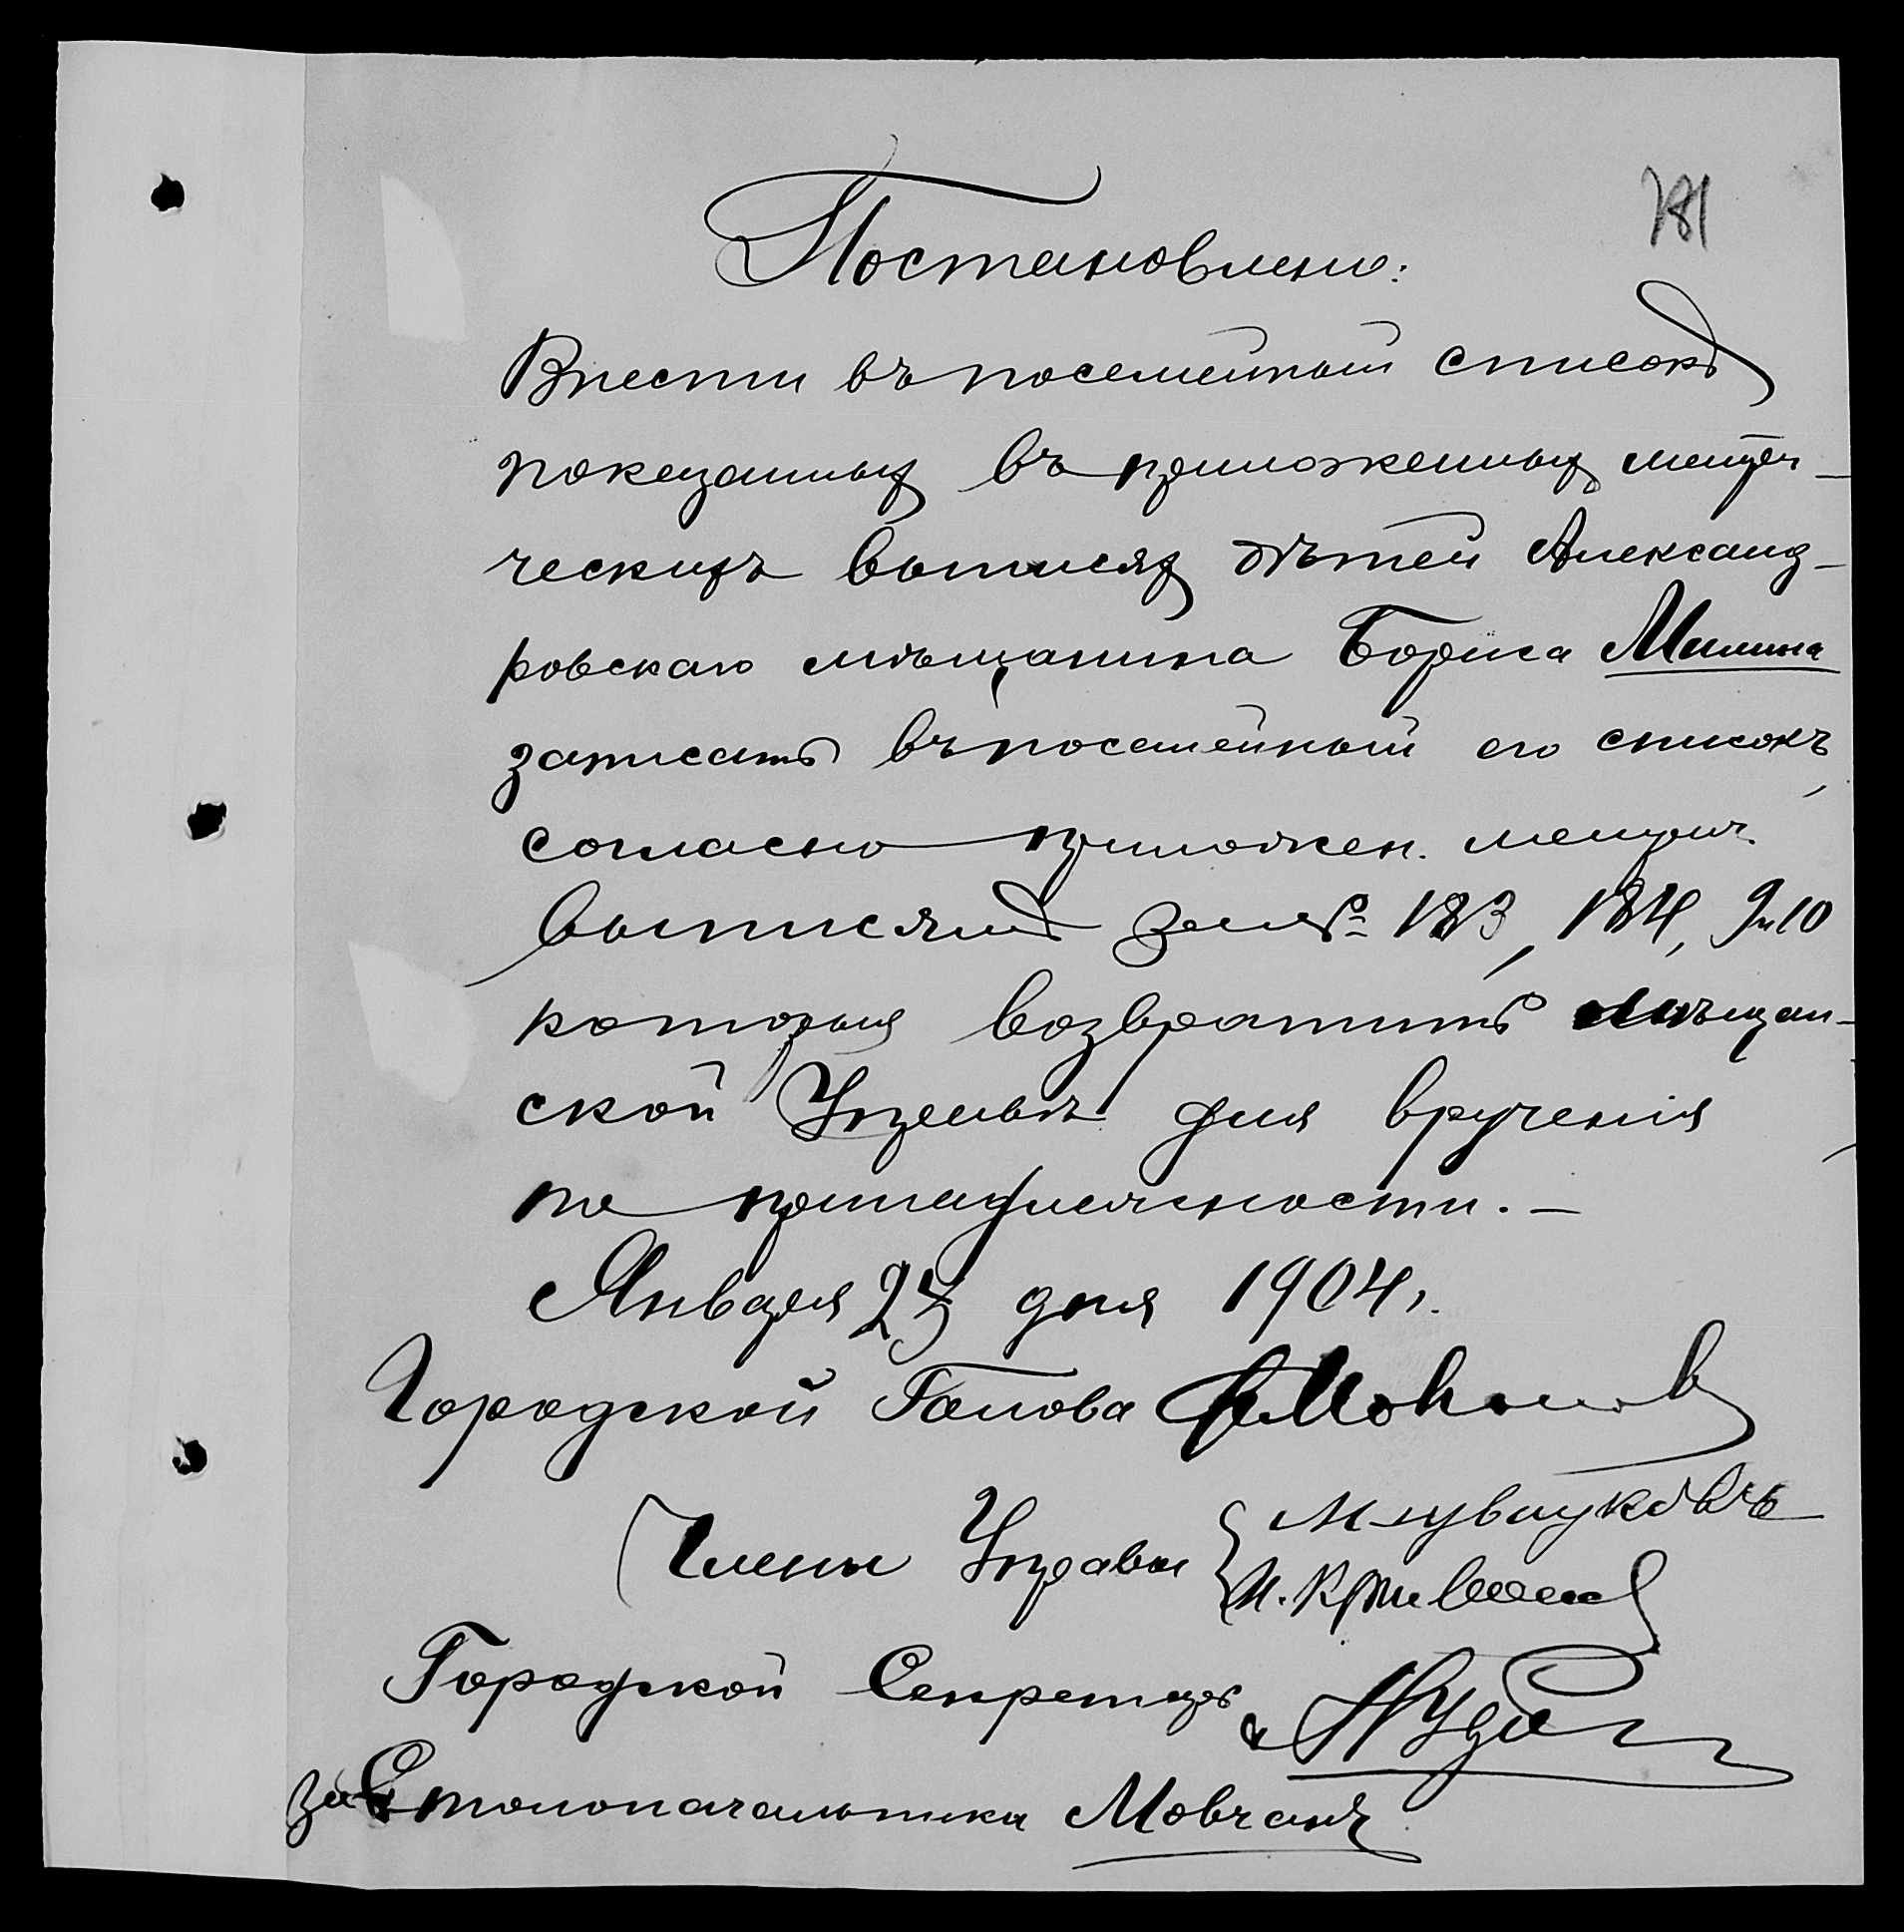 781
Постановлено:
Внести въ посемейный списокъ
показанныхъ въ приложенныхъ метри-
ческихъ выписяхъ дѣтей Александ-
ровскаго мѣщанина Бориса Милина
записать въ посемейный его списокъ,
согласно приложен. метрич.
выписямъ за №№ 183, 184, 9 и 10
которыя возвратить Мѣщан-
ской Управѣ для врученія
по принадлежности. —
Января 25 дня 1904 г.
Городской Голова
Члены Управы
Городской Секретарь
за Столоначальника Мовчанъ